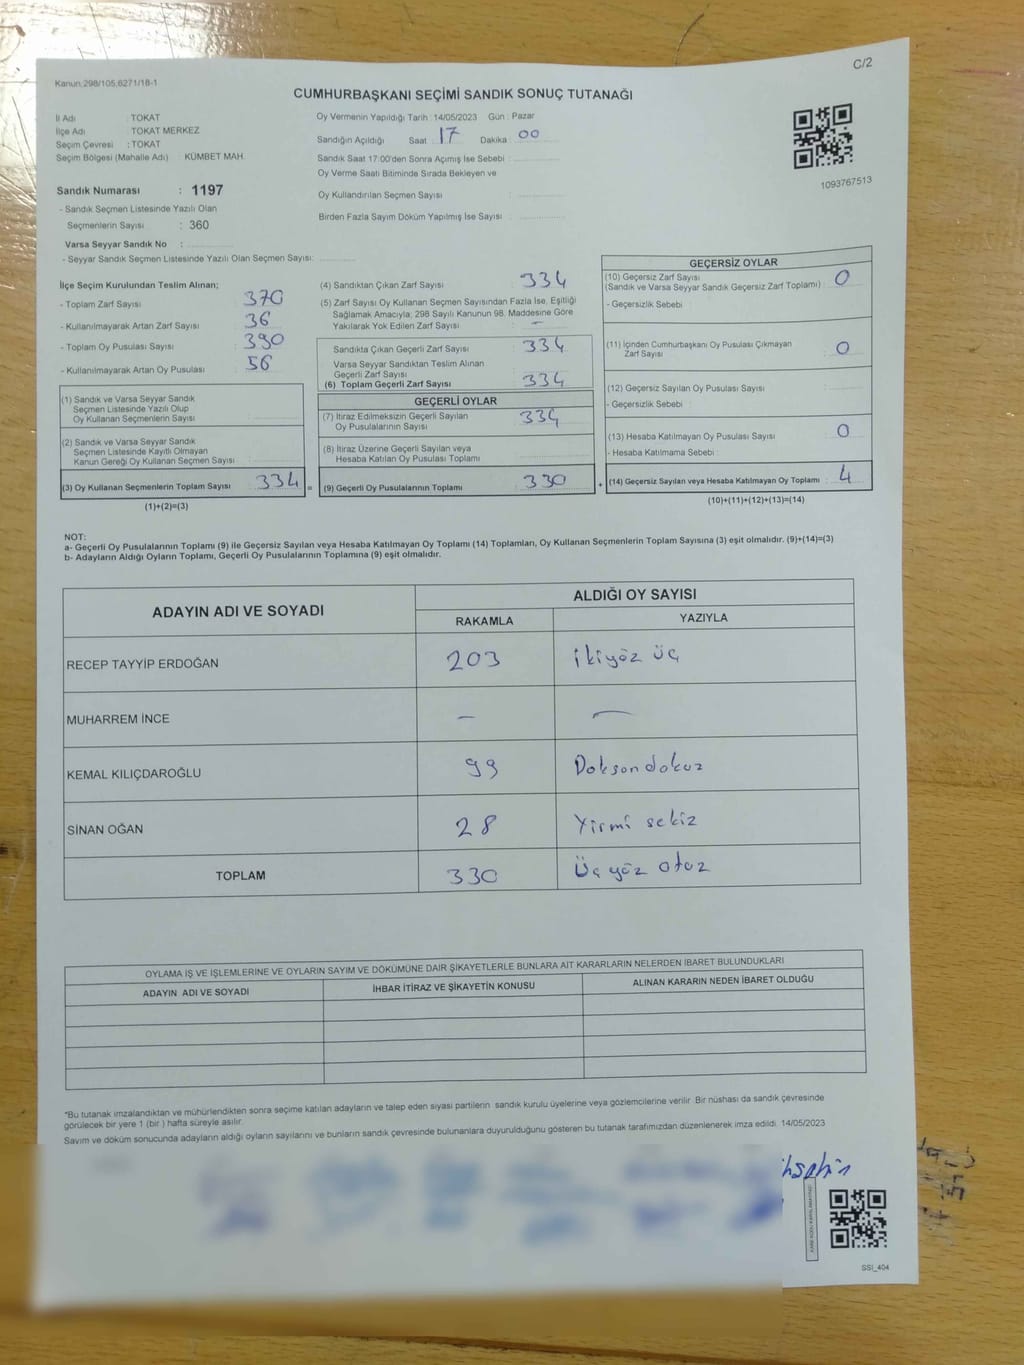 C/2
Kanun 298/105,6271/18-1
CUMHURBAŞKANI SEÇİMİ SANDIK SONUÇ TUTANAĞI
İl Adı : TOKAT
İlçe Adı : TOKAT MERKEZ
Seçim Çevresi : TOKAT
Seçim Bölgesi (Mahalle Adı) : KÜMBET MAH.
Sandık Numarası : 1197
- Sandık Seçmen Listesinde Yazılı Olan
Seçmenlerin Sayısı : 360
Varsa Seyyar Sandık No :
- Seyyar Sandık Seçmen Listesinde Yazılı Olan Seçmen Sayısı:
Oy Vermenin Yapıldığı Tarih : 14/05/2023 Gün : Pazar
Sandığın Açıldığı Saat 17 Dakika 00
Sandık Saat 17:00'den Sonra Açımış İse Sebebi :
Oy Verme Saati Bitiminde Sırada Bekleyen ve
Oy Kullandırılan Seçmen Sayısı :
Birden Fazla Sayım Döküm Yapılmış İse Sayısı :
1093767513
İlçe Seçim Kurulundan Teslim Alınan;
- Toplam Zarf Sayısı : 370
- Kullanılmayarak Artan Zarf Sayısı : 36
- Toplam Oy Pusulası Sayısı : 390
- Kullanılmayarak Artan Oy Pusulası : 56
(1) Sandık ve Varsa Seyyar Sandık
Seçmen Listesinde Yazılı Olup
Oy Kullanan Seçmenlerin Sayısı :
(2) Sandık ve Varsa Seyyar Sandık
Seçmen Listesinde Kayıtlı Olmayan
Kanun Gereği Oy Kullanan Seçmen Sayısı :
(3) Oy Kullanan Seçmenlerin Toplam Sayısı : 334 =
(1)+(2)=(3)
(4) Sandıktan Çıkan Zarf Sayısı : 334
(5) Zarf Sayısı Oy Kullanan Seçmen Sayısından Fazla İse, Eşitliği
Sağlamak Amacıyla; 298 Sayılı Kanunun 98. Maddesine Göre
Yakılarak Yok Edilen Zarf Sayısı : -
Sandıkta Çıkan Geçerli Zarf Sayısı : 334
Varsa Seyyar Sandıktan Teslim Alınan
Geçerli Zarf Sayısı :
(6) Toplam Geçerli Zarf Sayısı : 334
GEÇERLİ OYLAR
(7) İtiraz Edilmeksizin Geçerli Sayılan
Oy Pusulalarının Sayısı : 334
(8) İtiraz Üzerine Geçerli Sayılan veya
Hesaba Katılan Oy Pusulası Toplamı :
(9) Geçerli Oy Pusulalarının Toplamı : 330 +
GEÇERSİZ OYLAR
(10) Geçersiz Zarf Sayısı
(Sandık ve Varsa Seyyar Sandık Geçersiz Zarf Toplamı) : 0
- Geçersizlik Sebebi :
(11) İçinden Cumhurbaşkanı Oy Pusulası Çıkmayan
Zarf Sayısı : 0
(12) Geçersiz Sayılan Oy Pusulası Sayısı :
- Geçersizlik Sebebi :
(13) Hesaba Katılmayan Oy Pusulası Sayısı : 0
- Hesaba Katılmama Sebebi :
(14) Geçersiz Sayılan veya Hesaba Katılmayan Oy Toplamı : 4
(10)+(11)+(12)+(13)=(14)
NOT:
a- Geçerli Oy Pusulalarının Toplamı (9) ile Geçersiz Sayılan veya Hesaba Katılmayan Oy Toplamı (14) Toplamları, Oy Kullanan Seçmenlerin Toplam Sayısına (3) eşit olmalıdır. (9)+(14)=(3)
b- Adayların Aldığı Oyların Toplamı, Geçerli Oy Pusulalarının Toplamına (9) eşit olmalıdır.
ADAYIN ADI VE SOYADI
ALDIĞI OY SAYISI
RAKAMLA YAZIYLA
RECEP TAYYİP ERDOĞAN 203 ikiyöz üç
MUHARREM İNCE - -
KEMAL KILIÇDAROĞLU 99 Doksondokuz
SİNAN OĞAN 28 Yirmi sekiz
TOPLAM 330 Üç yöz otuz
OYLAMA İŞ VE İŞLEMLERİNE VE OYLARIN SAYIM VE DÖKÜMÜNE DAİR ŞİKAYETLERLE BUNLARA AİT KARARLARIN NELERDEN İBARET BULUNDUKLARI
ADAYIN ADI VE SOYADI İHBAR İTİRAZ VE ŞİKAYETİN KONUSU ALINAN KARARIN NEDEN İBARET OLDUĞU
*Bu tutanak imzalandıktan ve mühürlendikten sonra seçime katılan adayların ve talep eden siyasi partilerin sandık kurulu üyelerine veya gözlemcilerine verilir. Bir nüshası da sandık çevresinde
görülecek bir yere 1 (bir ) hafta süreyle asılır.
Sayım ve döküm sonucunda adayların aldığı oyların sayılarını ve bunların sandık çevresinde bulunanlara duyurulduğunu gösteren bu tutanak tarafımızdan düzenlenerek imza edildi. 14/05/2023
SSI_404